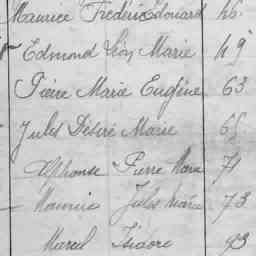 Maurice Frédéric Edouard 46
Edmond Léon Marie 49
Pierre Marie Eugène 63
Jules Désiré Marie 65
Alphonse Pierre Marie 71
Maurice Jules Marie 73
Marcel Isidore 93